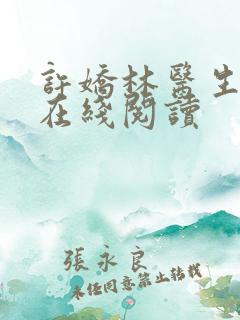 許嬌林醫生
在綫閱讀
張永良
未經同意禁止轉載